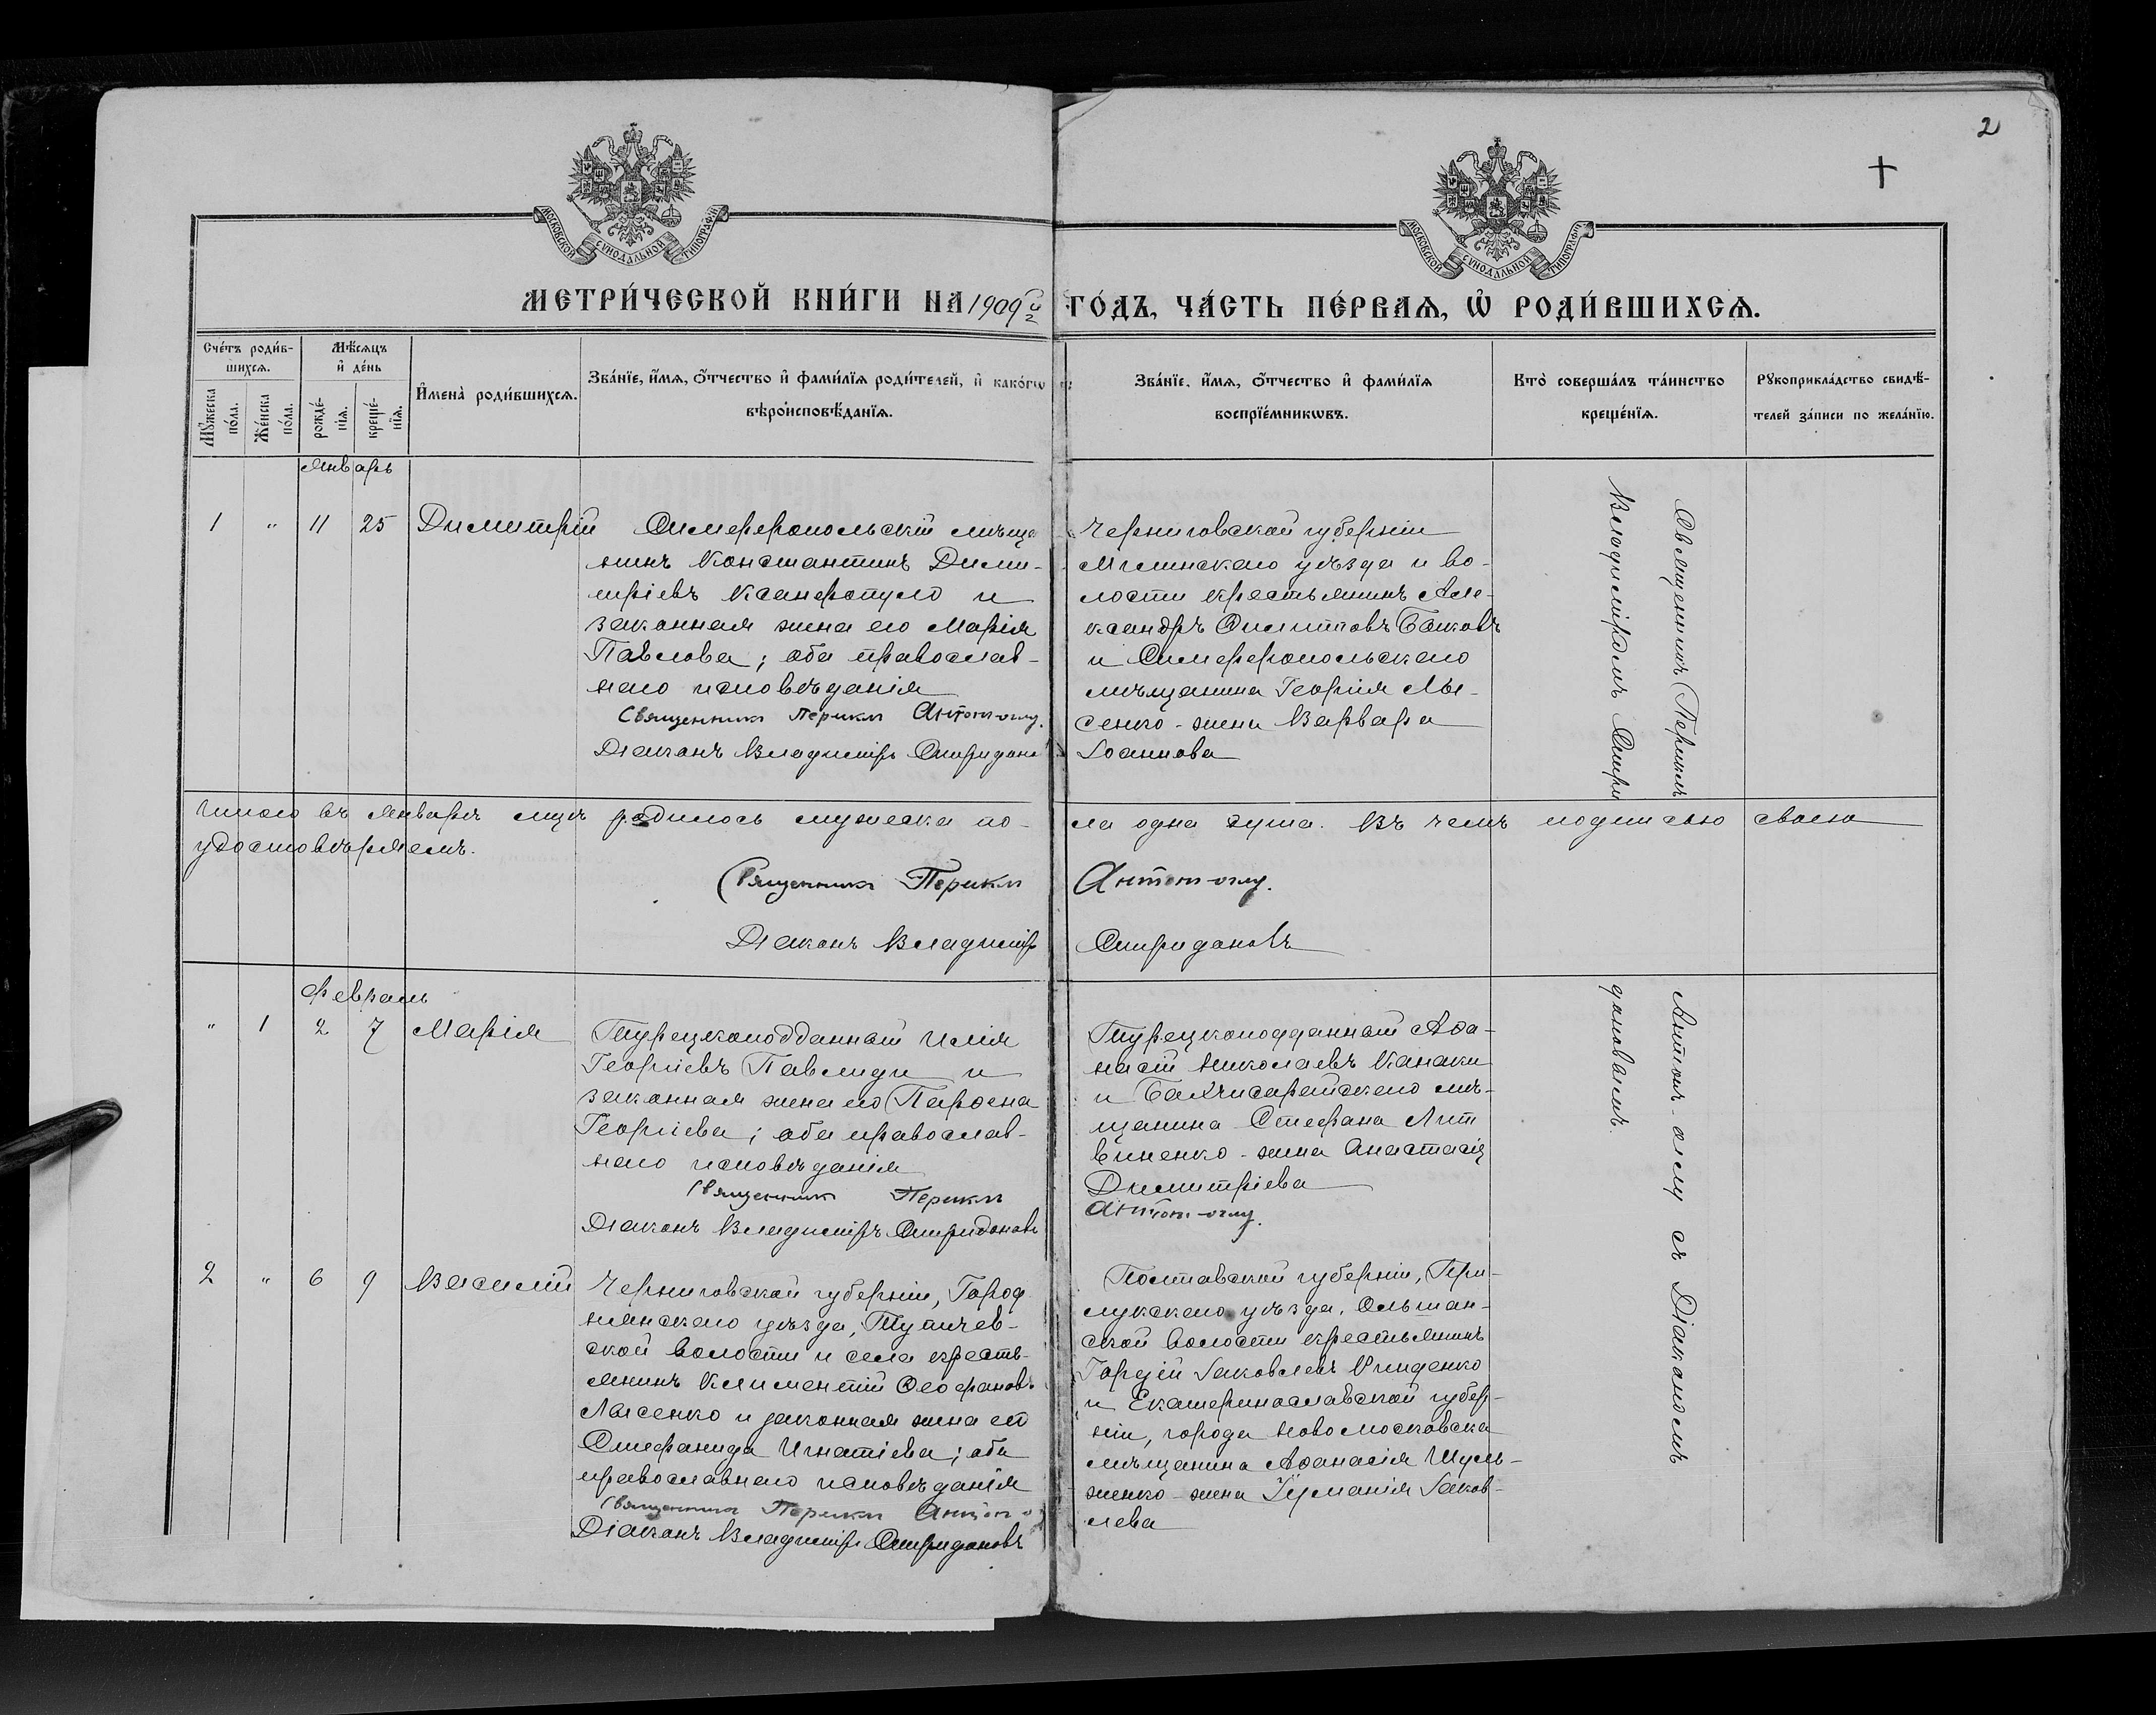 2
МОСКОВСКОЙ СУНОДАЛЬНОЙ ТИПОГРАФІИ
МОСКОВСКОЙ СУНОДАЛЬНОЙ ТИПОГРАФІИ
МЕТРИ́ЧЕСКОЙ КНИ́ГИ НА 1909й ГО́ДЪ, ЧА́СТЬ ПЕ́РВАѦ, Ѡ РОДИ́ВШИХСѦ.
Сче́тъ роди́в-
шихсѧ.
Мѣ́сѧцъ
и де́нь
Мꙋ́жеска
по́ла.
Же́нска
по́ла.
рожде́-
нїѧ.
креще́-
нїѧ.
Имена̀ роди́вшихсѧ.
Зва́нїе, и́мѧ, о́тчество и фами́лїѧ роди́телей, и како́гѡ
вѣроисповѣ́данїѧ.
Зва́нїе, и́мѧ, о́тчество и фами́лїѧ
воспрїе́мникѡвъ.
Кто̀ соверша́лъ та́инство
креще́нїѧ.
Рꙋкоприкла́дство свидѣ́-
телей за́писи по жела́нїю.
Январь
1 " 11 25 Димитрій
Симферопольскій мѣща
нинъ Константинъ Дими-
тріевъ Ксанфопуло и
законная жена его Марія
Павлова; оба православ-
наго исповѣданія
Священникъ Периклъ Антон-оглу.
Діаконъ Владиміръ Спиридоно
Черниговской губерніи
Мглинскаго уѣзда и во-
лости крестьянинъ Але-
ксандръ Филипповъ
и Симферопольскаго
мѣщанина Георгія Лы-
сенко-жена Варвара
Іоаннова
Священникъ Периклъ
Владиміромъ Спири
Итого въ Январѣ мѣц. родилось мужеска по-
ла одна душа. Въ чемъ подписью своею
удостовѣряемъ.
Священникъ Периклъ Антон-оглу.
Діаконъ Владиміръ Спиридоновъ
Февраль
" 1 2 7 Марія
Турецкоподданный Илія
Георгіевъ Павлиди и
законная жена его Парѳена
Георгіева; оба православ-
наго исповѣданія
Священникъ Периклъ
Діаконъ Владиміръ Спиридоновъ
Турецкоподданный Аѳа-
насій Николаевъ Канаки
и Бахчисарайскаго мѣ-
щанина Стефана Лит
виненко-жена Анастасія
Димитріева
Антон-оглу.
Антонъ-оглу съ Діакономъ
доновымъ.
2 " 6 9 Василій
Черниговской губерніи, Город
нянскаго уѣзда, Тупичев-
ской волости и села кресть-
янинъ Климентій Ѳеофановъ
Лысенко и законная жена его
Стефанида Игнатіева; оба
православнаго исповѣданія
Священникъ Периклъ Антон-о
Діаконъ Владиміръ Спиридоновъ
Полтавской губерніи, При-
лукскаго уѣзда, Ольшан-
ской волости крестьянинъ
Гордій Іаковлевъ
и Екатеринославской губер-
ніи, города Новомосковска
мѣщанина Аѳанасія Шуль-
женко-жена Іуліанія Іаков-
лева